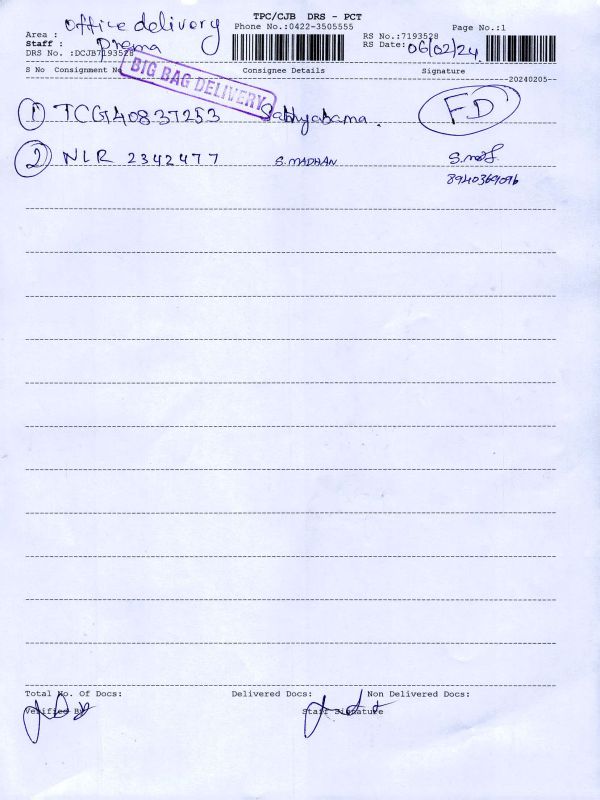 TPC/CJB DRS - PCT
Area : office delivery Phone No.:0422-3505555 RS No.:7193528 Page No.:1
Staff : Prema RS Date: 06/02/24
DRS No. :DCJB7193528
BIG BAG DELIVERY
S No Consignment No Consignee Details Signature
20240205
1 TCG40837253 Sabhyabama. FD
2 NLR 2342477 S. MADHAN
8940369096
Total No. Of Docs: Delivered Docs: Non Delivered Docs:
Verified By Staff Signature